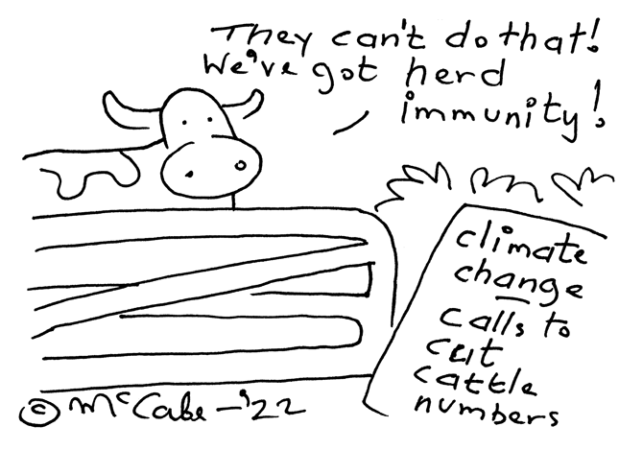 They can't do that!
We've got herd
immunity!
climate
change -
calls to
cut
cattle
numbers
© McCabe - '22